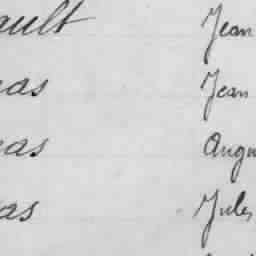 ault Jean
as Jean
as Augu
as Jules